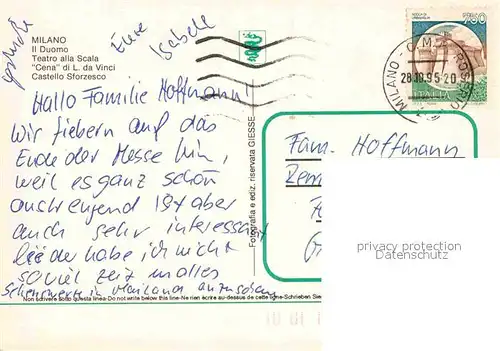 MILANO
Il Duomo
Teatro alla Scala
"Cena" di L. da Vinci
Castello Sforzesco
Hallo Familie Hoffmann!
Wir fiebern auf das
Ende der Messe hin,
weil es ganz schön
anstrengend ist aber
auch sehr interessant
leider habe ich nicht
soviel zeit um alles
Sehenswerte in Mailand anzusehen
Eure
Isabell
Non scrivere sotto questa linea-Do not write below this line-Ne rien écrire au-dessus de cette ligne-Schreiben Sie
Fotografia e ediz. riservata GIESSE
750
ITALIA
MILANO - C.M.P. ROSERIO
28.10.95.20
Fam. Hoffmann
privacy protection
Datenschutz